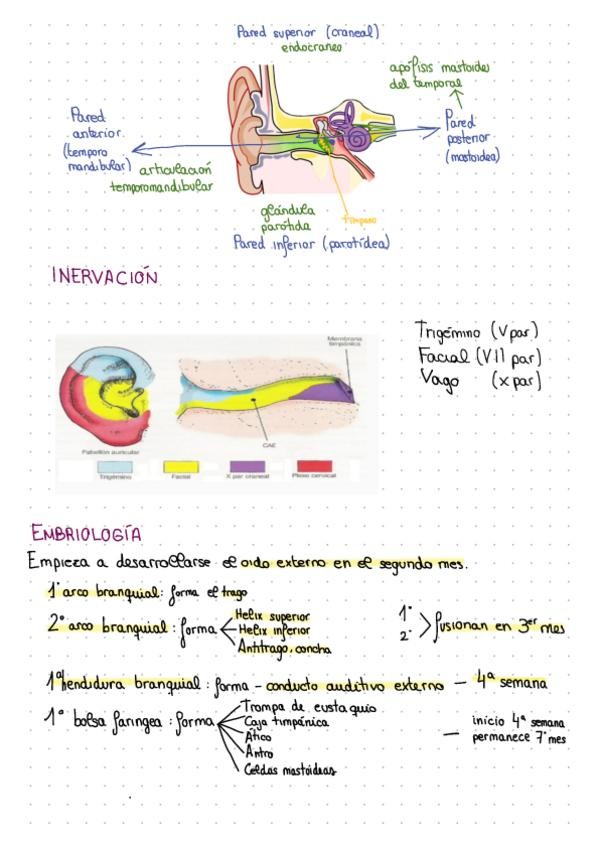 Pared superior (craneal)
endocraneo
apófisis mastoides
del temporal
Pared
anterior
(temporo
mandibular)
articulación
temporomandibular
Pared
posterior
(mastoidea)
glándula
parótida
tímpano
Pared inferior (parotídea)
INERVACIÓN
Membrana
timpánica
Trigémino (V par)
Facial (VII par)
Vago (X par)
CAE
Pabellón auricular
Trigémino
Facial
X par craneal
Plexo cervical
EMBRIOLOGÍA
Empieza a desarrollarse el oido externo en el segundo mes.
1º arco branquial: forma el trago
2º arco branquial: forma
Helix superior
Helix inferior
Antitrago, concha
1º
2º
fusionan en 3er mes
1ª hendidura branquial: forma - conducto auditivo externo - 4ª semana
1ª bolsa faringea: forma
Trompa de eustaquio
Caja timpánica
Ático
Antro
Celdas mastoideas
- inicio 4ª semana
permanece 7º mes